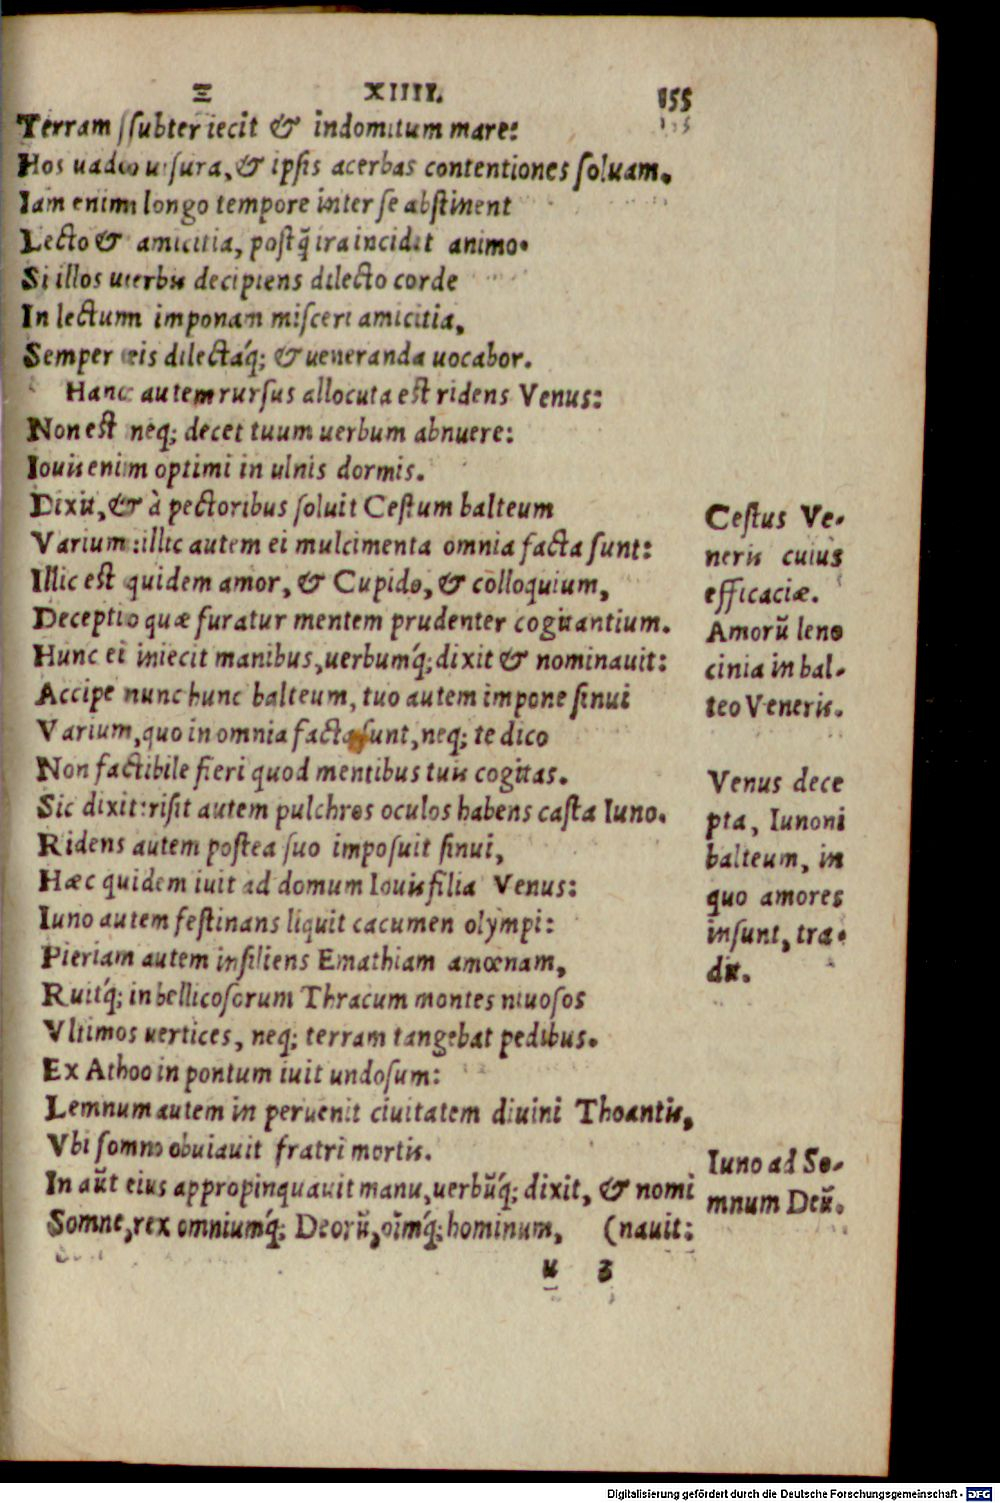 Ξ XIIII. 155
Terram ſſubter iecit & indomitum mare:
Hos uado uiſura, & ipſis acerbas contentiones ſoluam.
Iam enim longo tempore inter ſe abſtinent
Lecto & amicitia, poſtq̃ ira incidit animo.
Si illos uerbis decipiens dilecto corde
In lectum imponam miſceri amicitia,
Semper eis dilectaq́; & ueneranda uocabor.
Hanc autem rurſus allocuta eſt ridens Venus:
Non eſt neq; decet tuum uerbum abnuere:
Iouis enim optimi in ulnis dormis.
Dixit, & à pectoribus ſoluit Ceſtum balteum
Varium: illic autem ei mulcimenta omnia facta ſunt:
Illic eſt quidem amor, & Cupido, & colloquium,
Deceptio quæ furatur mentem prudenter cogitantium.
Hunc ei iniecit manibus, uerbumq́; dixit & nominauit:
Accipe nunc hunc balteum, tuo autem impone ſinui
Varium, quo in omnia facta ſunt, neq; te dico
Non factibile fieri quod mentibus tuis cogitas.
Sic dixit: riſit autem pulchros oculos habens caſta Iuno.
Ridens autem poſtea ſuo impoſuit ſinui,
Hæc quidem iuit ad domum Iouis filia Venus:
Iuno autem feſtinans liquit cacumen olympi:
Pieriam autem inſiliens Emathiam amœnam,
Ruitq́; in bellicoſorum Thracum montes niuoſos
Vltimos uertices, neq; terram tangebat pedibus.
Ex Athoo in pontum iuit undoſum:
Lemnum autem in peruenit ciuitatem diuini Thoantis,
Vbi ſomno obuiauit fratri mortis.
In aũt eius appropinquauit manu, uerbũq́; dixit, & nomi
Somne, rex omniumq́; Deorũ, oĩmq́; hominum, (nauit:
u 3
Ceſtus Ve-
neris cuius
efficaciæ.
Amorũ leno
cinia in bal-
teo Veneris.
Venus dece
pta, Iunoni
balteum, in
quo amores
inſunt, tra-
dit.
Iuno ad So-
mnum Deũ.
Digitalisierung gefördert durch die Deutsche Forschungsgemeinschaft - DFG